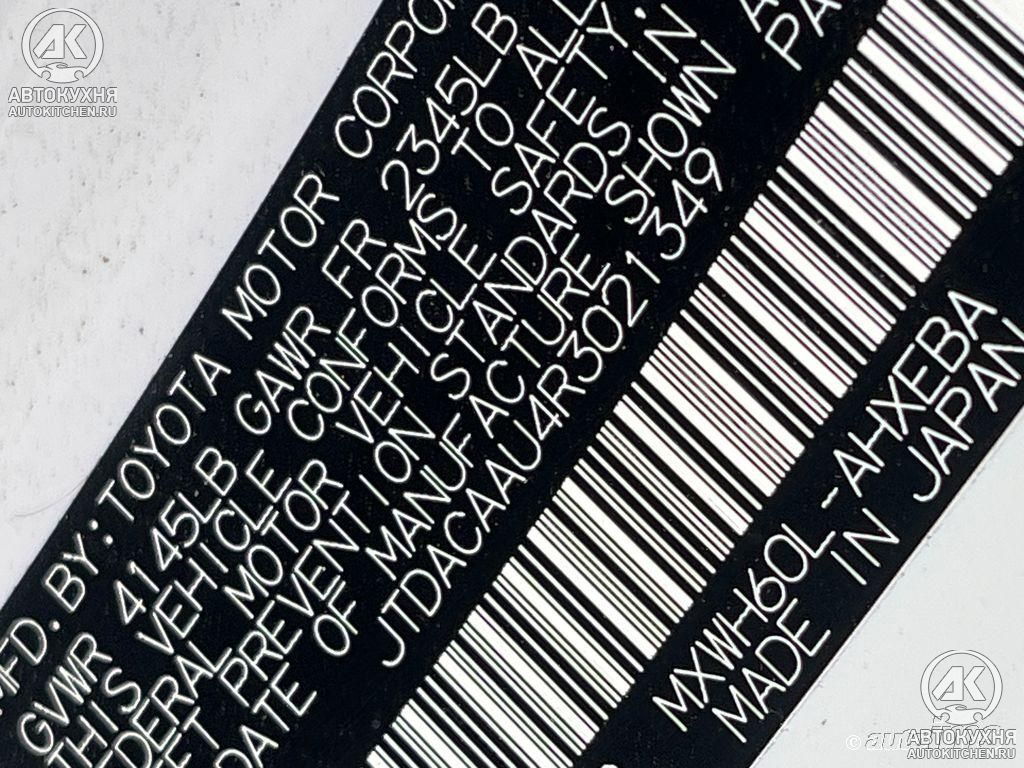 АВТОКУХНЯ
AUTOKITCHEN.RU
MFD. BY: TOYOTA MOTOR
GVWR 4145LB GAWR FR 2345LB
THIS VEHICLE CONFORMS TO ALL
MOTOR VEHICLE SAFETY,
PREVENTION STANDARDS IN
DATE OF MANUFACTURE SHOWN
JTDACAAU4R3021349
MXWH60L-AHXEBA
MADE IN JAPAN
АВТОКУХНЯ
AUTOKITCHEN.RU